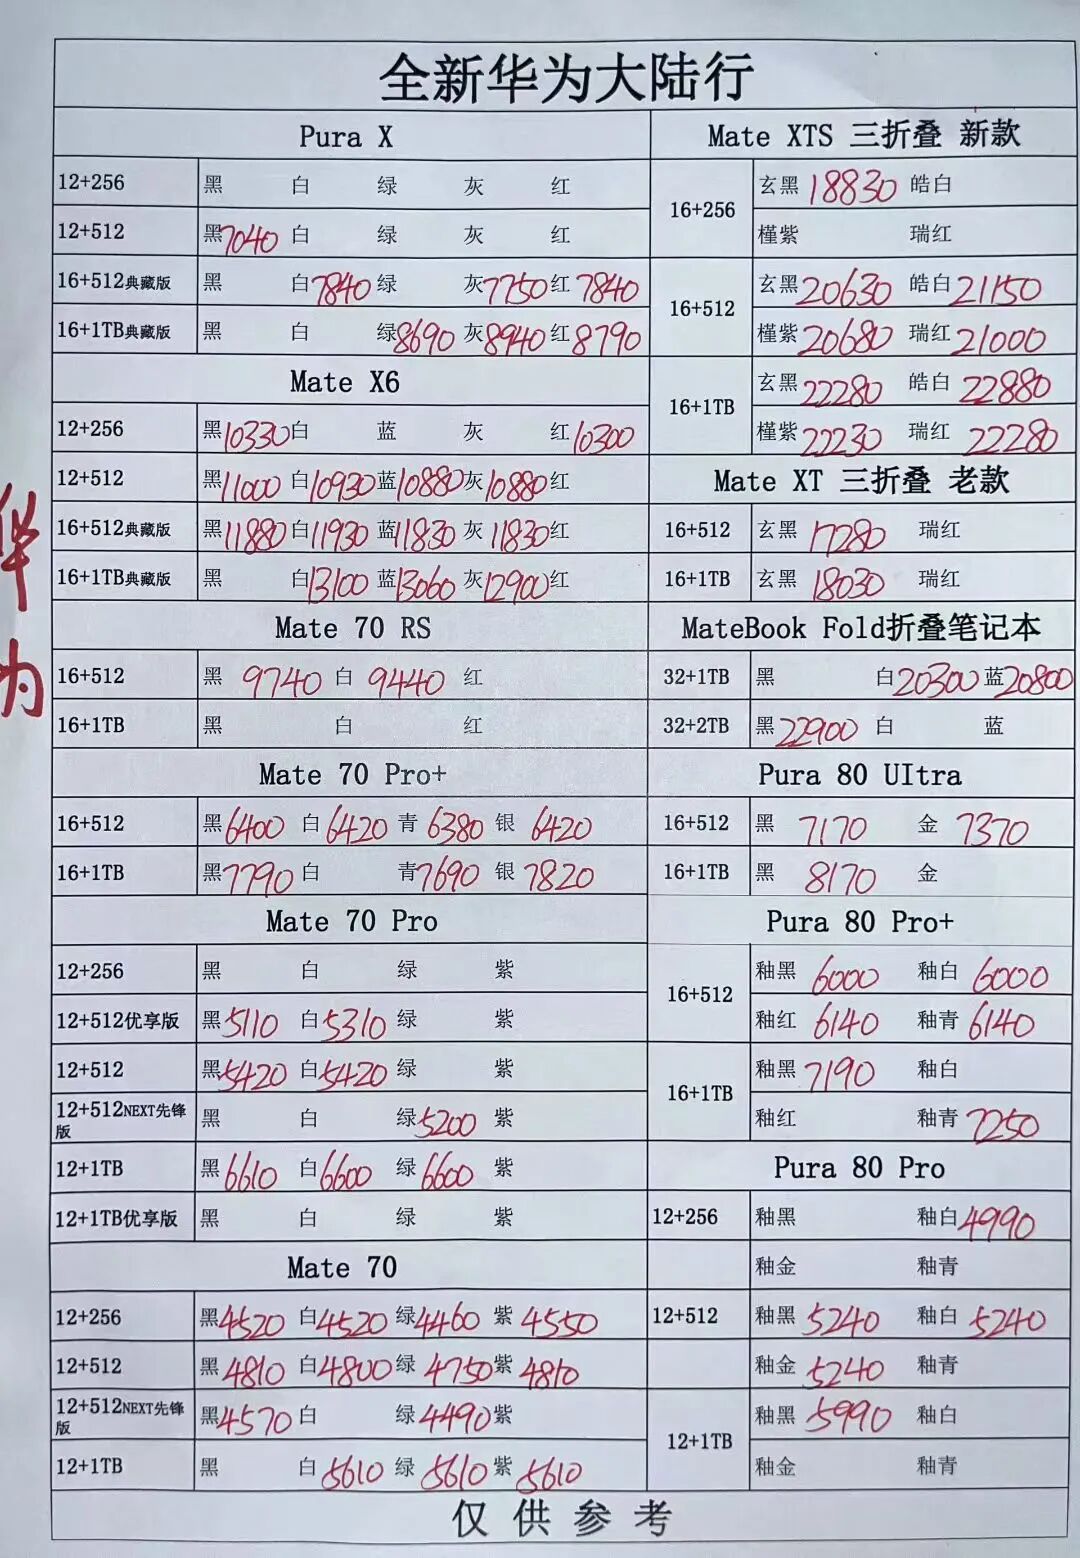 全新华为大陆行
Pura X
12+256 黑 白 绿 灰 红
12+512 黑7040 白 绿 灰 红
16+512典藏版 黑 白7840 绿 灰7750 红7840
16+1TB典藏版 黑 白 绿8690 灰8940 红8790
Mate X6
12+256 黑10330 白 蓝 灰 红10300
12+512 黑11000 白10930 蓝10880 灰10880 红
16+512典藏版 黑11880 白11930 蓝11830 灰11830 红
16+1TB典藏版 黑 白13100 蓝13060 灰12900 红
Mate 70 RS
16+512 黑 9740 白 9440 红
16+1TB 黑 白 红
Mate 70 Pro+
16+512 黑6400 白6420 青6380 银 6420
16+1TB 黑7790 白 青7690 银 7820
Mate 70 Pro
12+256 黑 白 绿 紫
12+512优享版 黑5110 白5310 绿 紫
12+512 黑5420 白5420 绿 紫
12+512NEXT先锋版 黑 白 绿5200 紫
12+1TB 黑6610 白6600 绿6600 紫
12+1TB优享版 黑 白 绿 紫
Mate 70
12+256 黑4520 白4520 绿4460 紫 4550
12+512 黑4810 白4800 绿 4750 紫 4810
12+512NEXT先锋版 黑4570 白 绿4490 紫
12+1TB 黑 白5610 绿 5610 紫5610
Mate XTS 三折叠 新款
16+256 玄黑 18830 皓白
槿紫 瑞红
16+512 玄黑20630 皓白21150
槿紫20680 瑞红21000
16+1TB 玄黑22280 皓白 22880
槿紫22230 瑞红 22280
Mate XT 三折叠 老款
16+512 玄黑 17280 瑞红
16+1TB 玄黑 18030 瑞红
MateBook Fold折叠笔记本
32+1TB 黑 白20300 蓝20800
32+2TB 黑22900 白 蓝
Pura 80 UItra
16+512 黑 7170 金 7370
16+1TB 黑 8170 金
Pura 80 Pro+
16+512 釉黑 6000 釉白 6000
釉红 6140 釉青 6140
16+1TB 釉黑 7190 釉白
釉红 釉青 7250
Pura 80 Pro
12+256 釉黑 釉白4990
釉金 釉青
12+512 釉黑 5240 釉白 5240
釉金 5240 釉青
12+1TB 釉黑 5990 釉白
釉金 釉青
仅供参考
华为